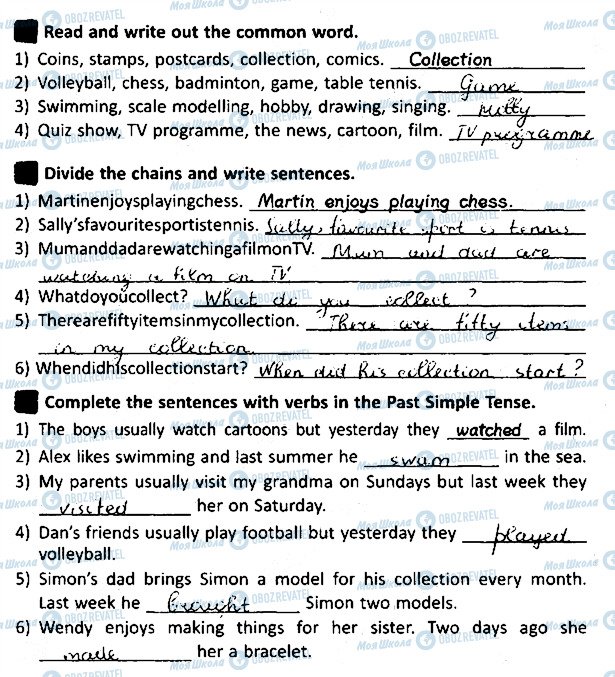 Read and write out the common word.
1) Coins, stamps, postcards, collection, comics. Collection
2) Volleyball, chess, badminton, game, table tennis. Game
3) Swimming, scale modelling, hobby, drawing, singing.
4) Quiz show, TV programme, the news, cartoon, film. TV programme
Divide the chains and write sentences.
1) Martinenjoysplayingchess. Martin enjoys playing chess.
2) Sally'sfavouritesportistennis. Sally's favourite sport is tennis
3) MumanddadarewatchingafilmonTV. Mum and dad are
watching a film on TV
4) Whatdoyoucollect? What do you collect ?
5) Therearefiftyitemsinmycollection. There are fifty items
in my collection
6) Whendidhiscollectionstart? When did his collection start?
Complete the sentences with verbs in the Past Simple Tense.
1) The boys usually watch cartoons but yesterday they watched a film.
2) Alex likes swimming and last summer he swam in the sea.
3) My parents usually visit my grandma on Sundays but last week they
visited her on Saturday.
4) Dan's friends usually play football but yesterday they played
volleyball.
5) Simon's dad brings Simon a model for his collection every month.
Last week he brought Simon two models.
6) Wendy enjoys making things for her sister. Two days ago she
made her a bracelet.
Моя Школа OBOZREVATEL